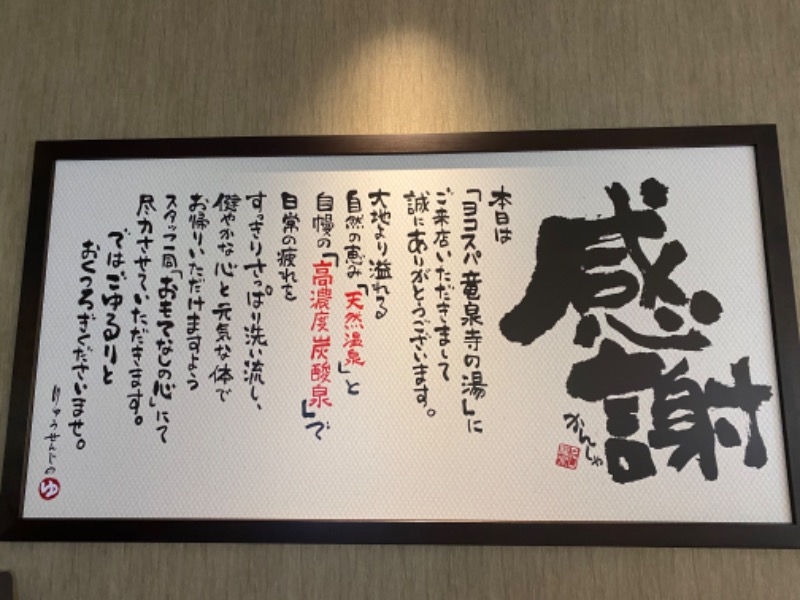 感謝
かんしゃ
本日は
「ヨコスパ竜泉寺の湯」に
ご来店いただきまして
誠にありがとうございます。
大地より溢れる
自然の恵み「天然温泉」と
自慢の「高濃度炭酸泉」で
日常の疲れを
すっきりさっぱり洗い流し、
健やかな心と元気な体で
お帰りいただけますよう
スタッフ一同「おもてなしの心」にて
尽力させていただきます。
ではごゆるりと
おくつろぎくださいませ。
りゅうせんじの
ゆ